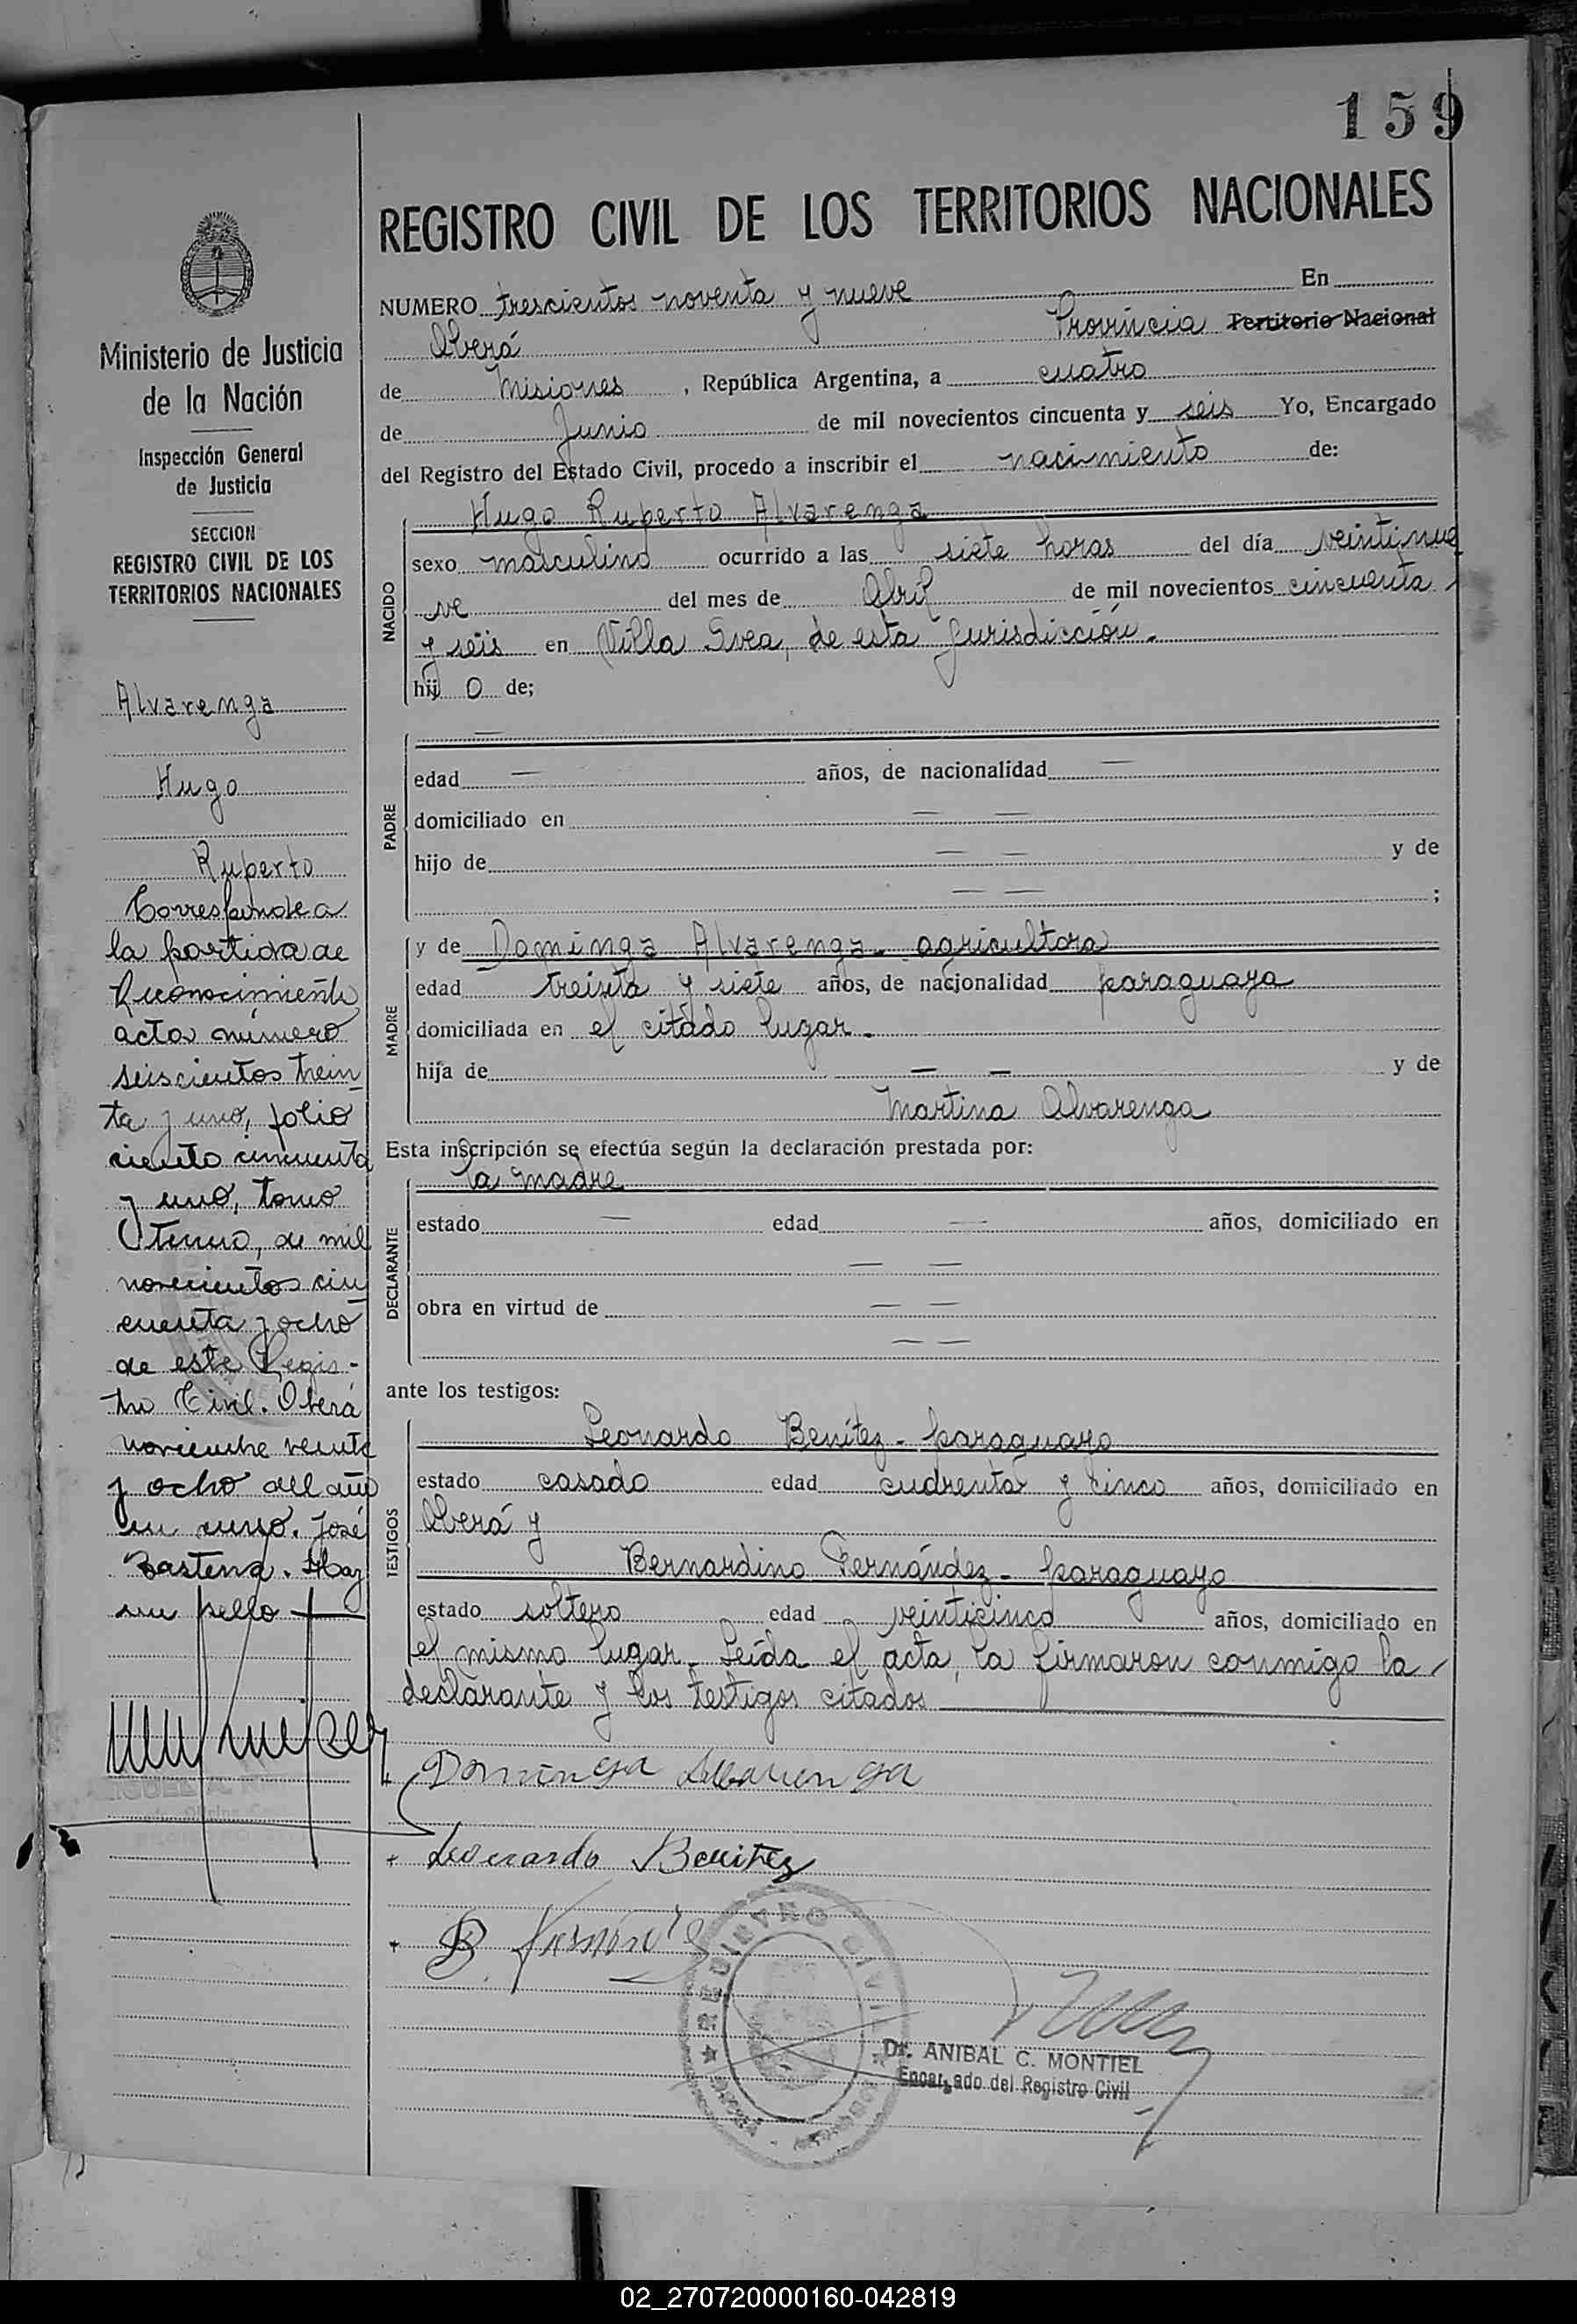 159
REGISTRO CIVIL DE LOS TERRITORIOS NACIONALES
Ministerio de Justicia
de la Nación
Inspección General
de Justicia
SECCION
REGISTRO CIVIL DE LOS
TERRITORIOS NACIONALES
Alvarenga
Hugo
Ruperto
Corresponde a
la partida de
Reconocimiento
acta número
seiscientos trein
ta y uno, folio
ciento cincuenta
y uno, tomo
de mil
novecientos cin
cuenta y ocho
de este Regis-
tro Civil. Oberá
noviembre veinte
y ocho del año
en curso. José
Hay
un sello
NUMERO trescientos noventa y nueve En
Oberá Provincia Territorio Nacional
de Misiones , República Argentina, a cuatro
de Junio de mil novecientos cincuenta y seis Yo, Encargado
del Registro del Estado Civil, procedo a inscribir el nacimiento de:
NACIDO
Hugo Ruperto Alvarenga
sexo masculino ocurrido a las siete horas del día veintinue
ve del mes de Abril de mil novecientos cincuenta
y seis en Villa Svea, de esta jurisdicción.
hij o de;
PADRE
—
edad — años, de nacionalidad —
domiciliado en — —
hijo de — — y de
— — ;
MADRE
y de Dominga Alvarenga - agricultora
edad treinta y siete años, de nacionalidad paraguaya
domiciliada en el citado lugar.
hija de — — y de
Martina Alvarenga
Esta inscripción se efectúa según la declaración prestada por:
DECLARANTE
la madre
estado — edad — años, domiciliado en
— —
obra en virtud de — —
— —
ante los testigos:
TESTIGOS
Leonardo Benítez - paraguayo
estado casado edad cuarenta y cinco años, domiciliado en
Oberá y
Bernardino Fernández - paraguayo
estado soltero edad veinticinco años, domiciliado en
el mismo lugar. Leída el acta, la firmaron conmigo la
declarante y los testigos citados
Dominga Albarenga
Leonardo Benitez
REGISTRO CIVIL
Dr. ANIBAL C. MONTIEL
Encargado del Registro Civil
02_270720000160-042819